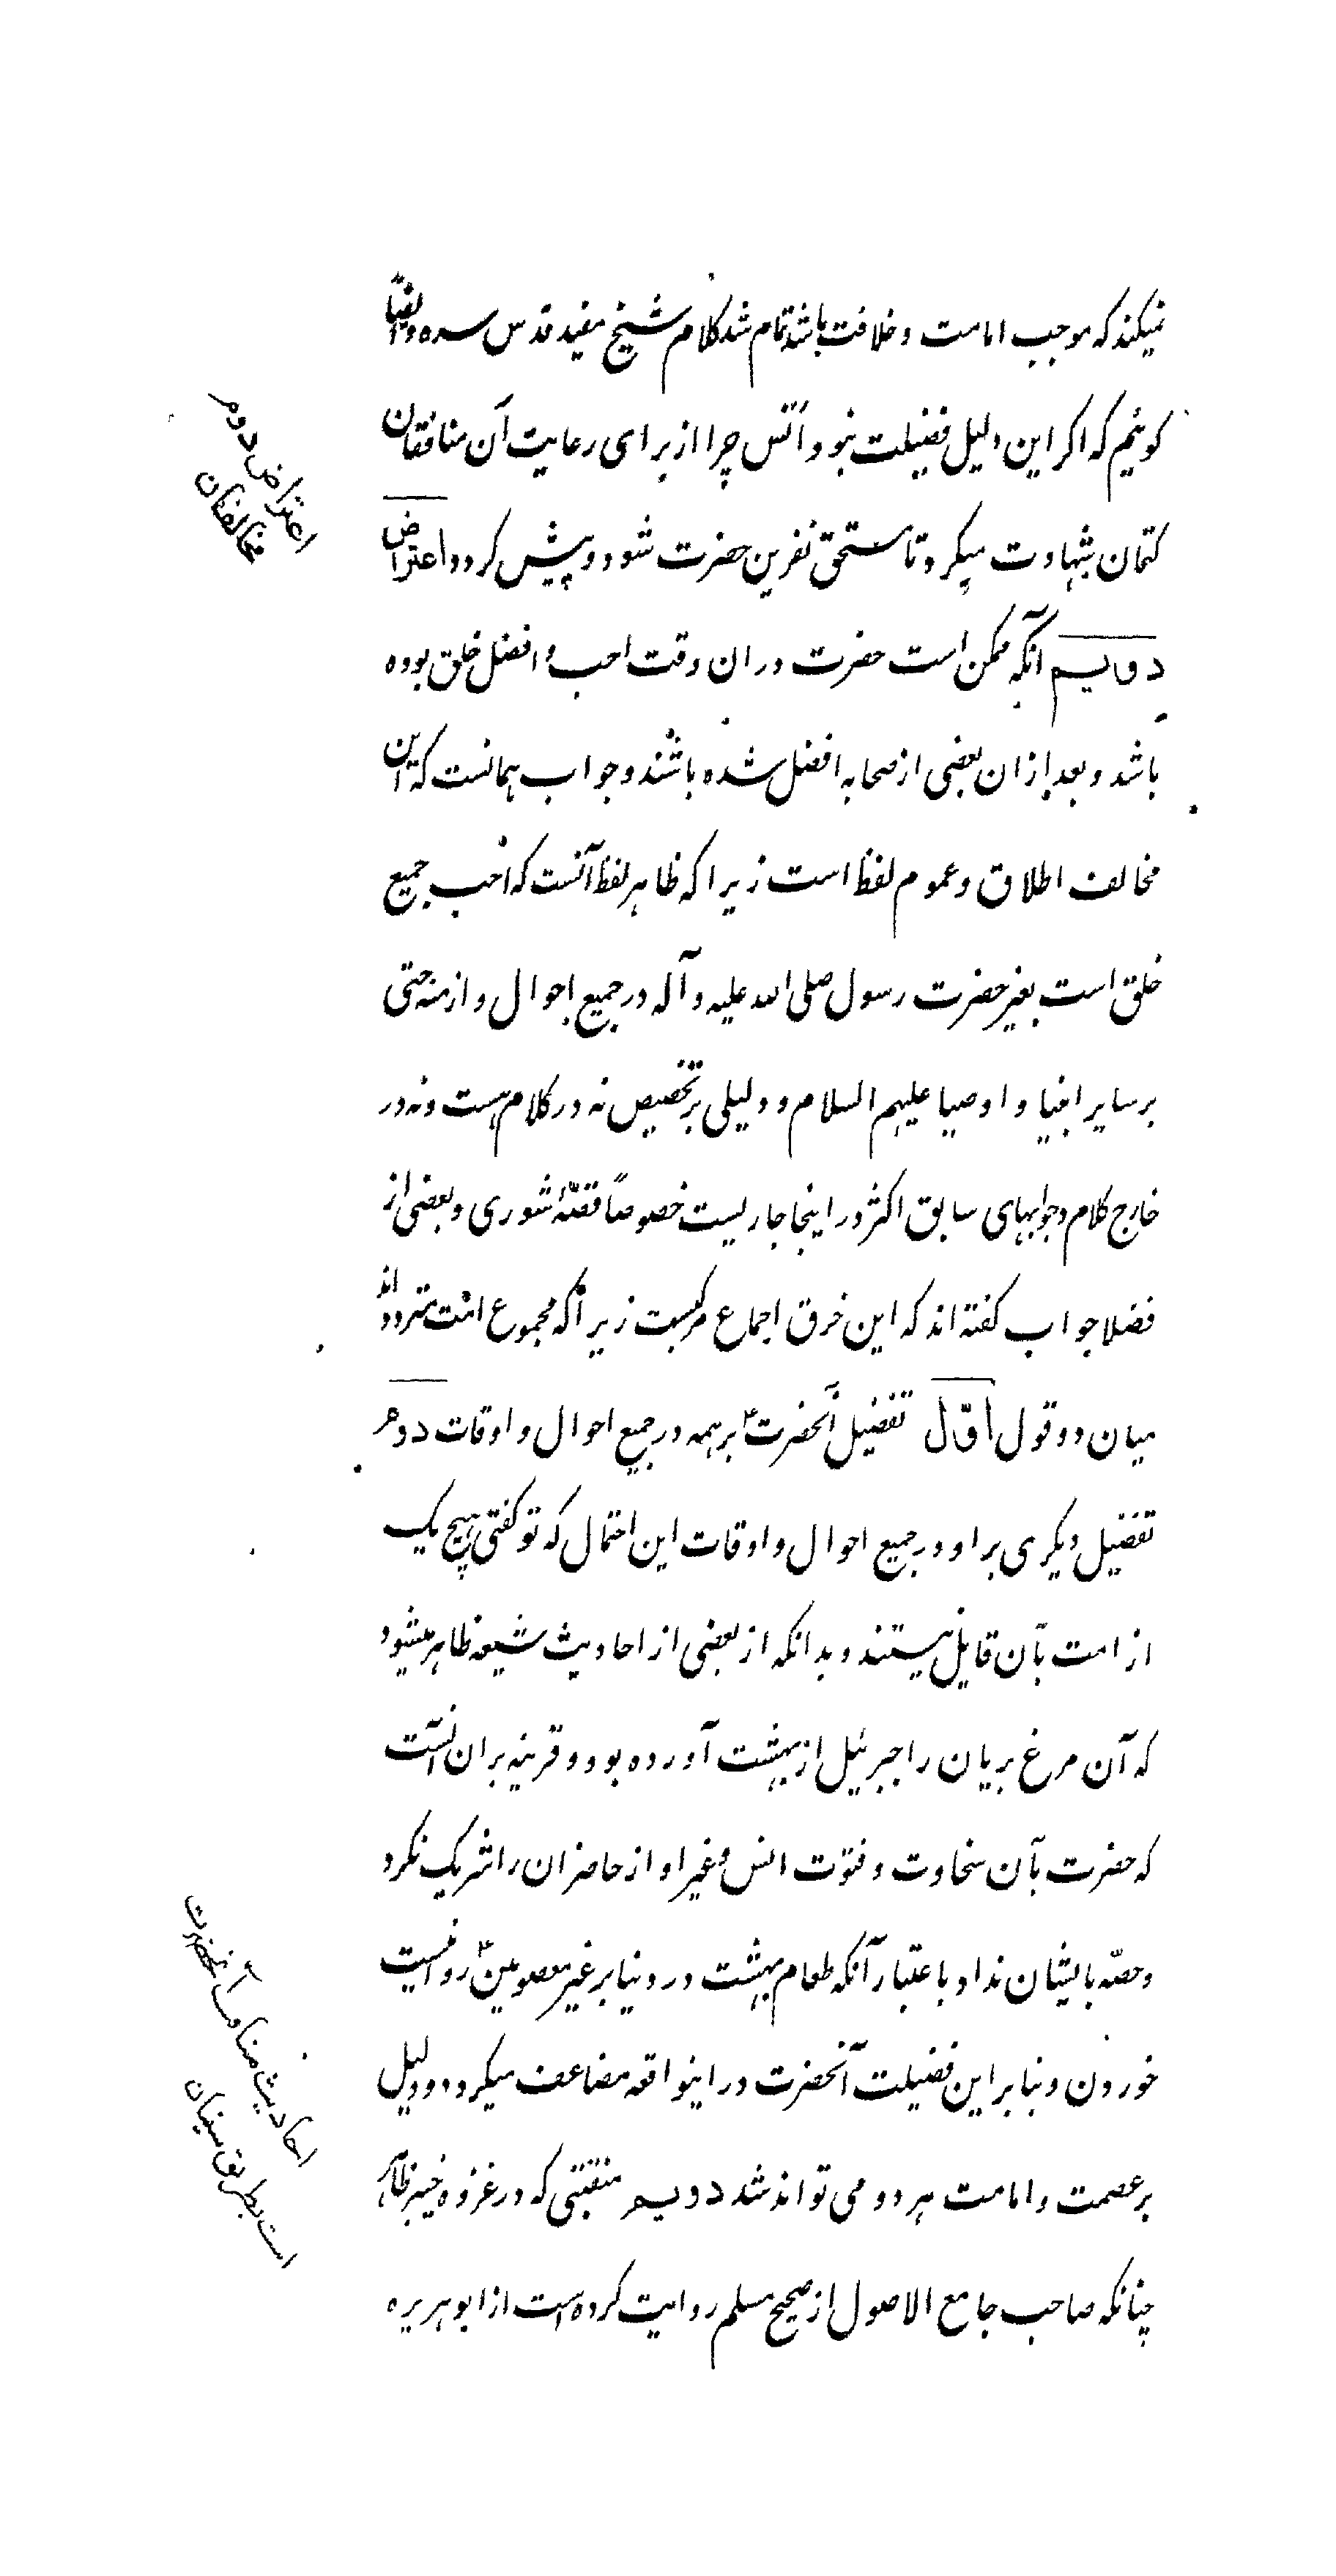 نمیکند که موجب امامت و خلافت باشد تمام شد کلام شیخ مفید قدس سره و ایضاً
کوئیم که اکر این دلیل فضیلت نبود انس چرا از برای رعایت آن منافقان
کتمان شهادت میکرد تا مستحق نفرین حضرت شود و پیش کردد اعتراض
دویم آنکه ممکن است حضرت دران وقت احب و افضل خلق بوده
باشد و بعد ازان بعضی از صحابه افضل شده باشند و جواب همانست که این
مخالف اطلاق و عموم لفظ است زیرا که ظاهر لفظ آنست که احب جمیع
خلق است بغیر حضرت رسول صلی الله علیه و آله در جمیع احوال و ازمنه حتی
بر سایر انبیا و اوصیا علیهم السلام و دلیلی بر تخصیص نه در کلام هست و نه در
خارج کلام و جوابهای سابق اکثر در اینجا جاریست خصوصاً قصّهٔ شوری و بعضی از
فضلا جواب کفته اند که این خرق اجماع مرکبست زیرا که مجموع امّت متردد اند
میان دو قول اوّل تفضیل آنحضرت ع بر همه در جمیع احوال و اوقات دوم
تفضیل دیکری بر او در جمیع احوال و اوقات این احتمال که تو کفتی هیچ یک
از امت بآن قایل نیستند و بدانکه از بعضی از احادیث شیعه ظاهر میشود
که آن مرغ بریان را جبرئیل از بهشت آورده بود و قرینه بران آنست
که حضرت بآن سخاوت و فتوّت انس و غیر او از حاضران را شریک نکرد
و حصّه بایشان نداد باعتبار آنکه طعام بهشت در دنیا بر غیر معصومین ع روا نیست
خوردن و بنابراین فضیلت آنحضرت در اینواقعه مضاعف میکردد و دلیل
بر عصمت و امامت هر دو می تواند شد دویم منقبتی که در غزوه خیبر ظاهر
چنانکه صاحب جامع الاصول از صحیح مسلم روایت کرده است از ابوهریره
اعتراض دوم
مخالفان
احادیث مناقب آنحضرت
است بطریق سنیان